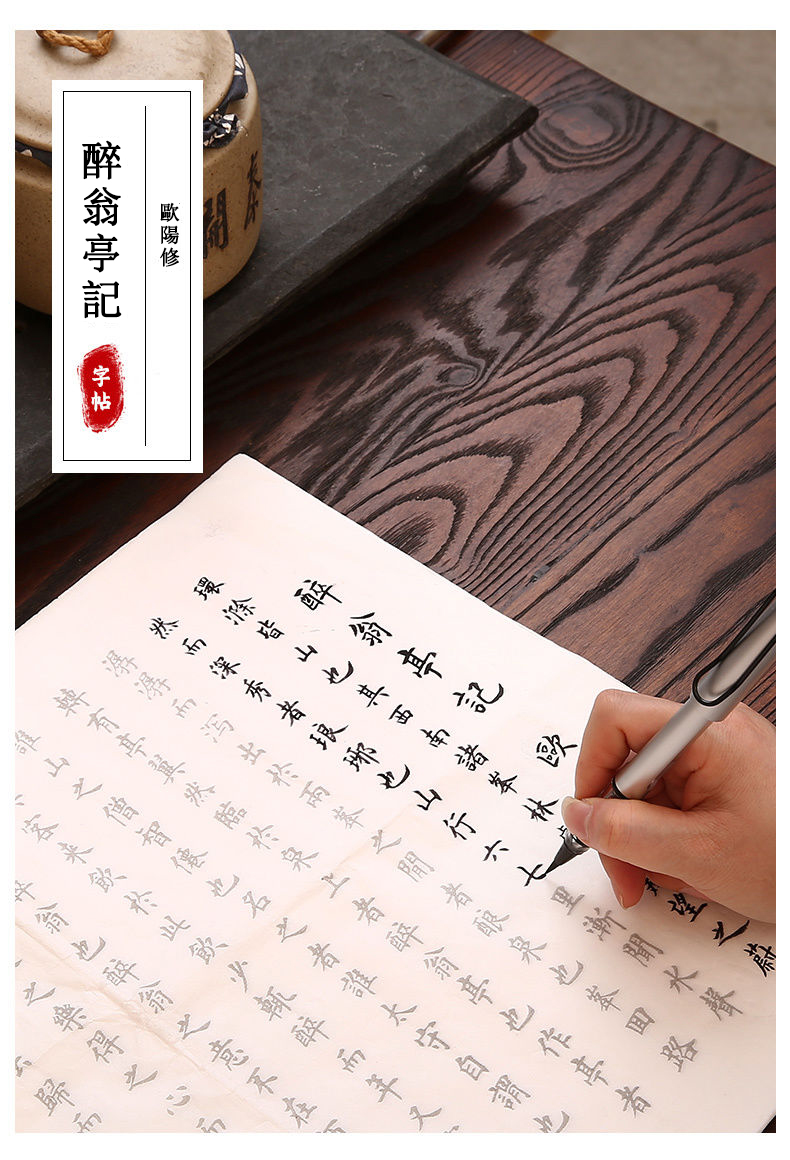 醉翁亭記
歐陽修
字帖
醉翁亭記 歐
環滁皆山也其西南諸峯林望之蔚
然而深秀者琅琊也山行六七里漸聞水聲
潺潺而泻出於兩峯之間者釀泉也峯回路
轉有亭翼然臨於泉上者醉翁亭也作亭者
誰山之僧智僊也名之者誰太守自謂也
客來飲於此飲少輒醉而年又
翁也醉翁之意不在
之樂得之心而
歸而